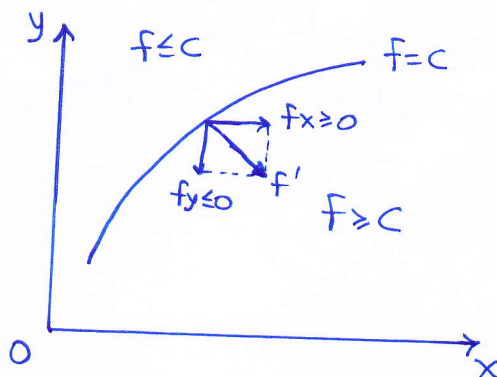 y
f≤C
f=C
fx≥0
fy≤0
f'
f≥C
O
x